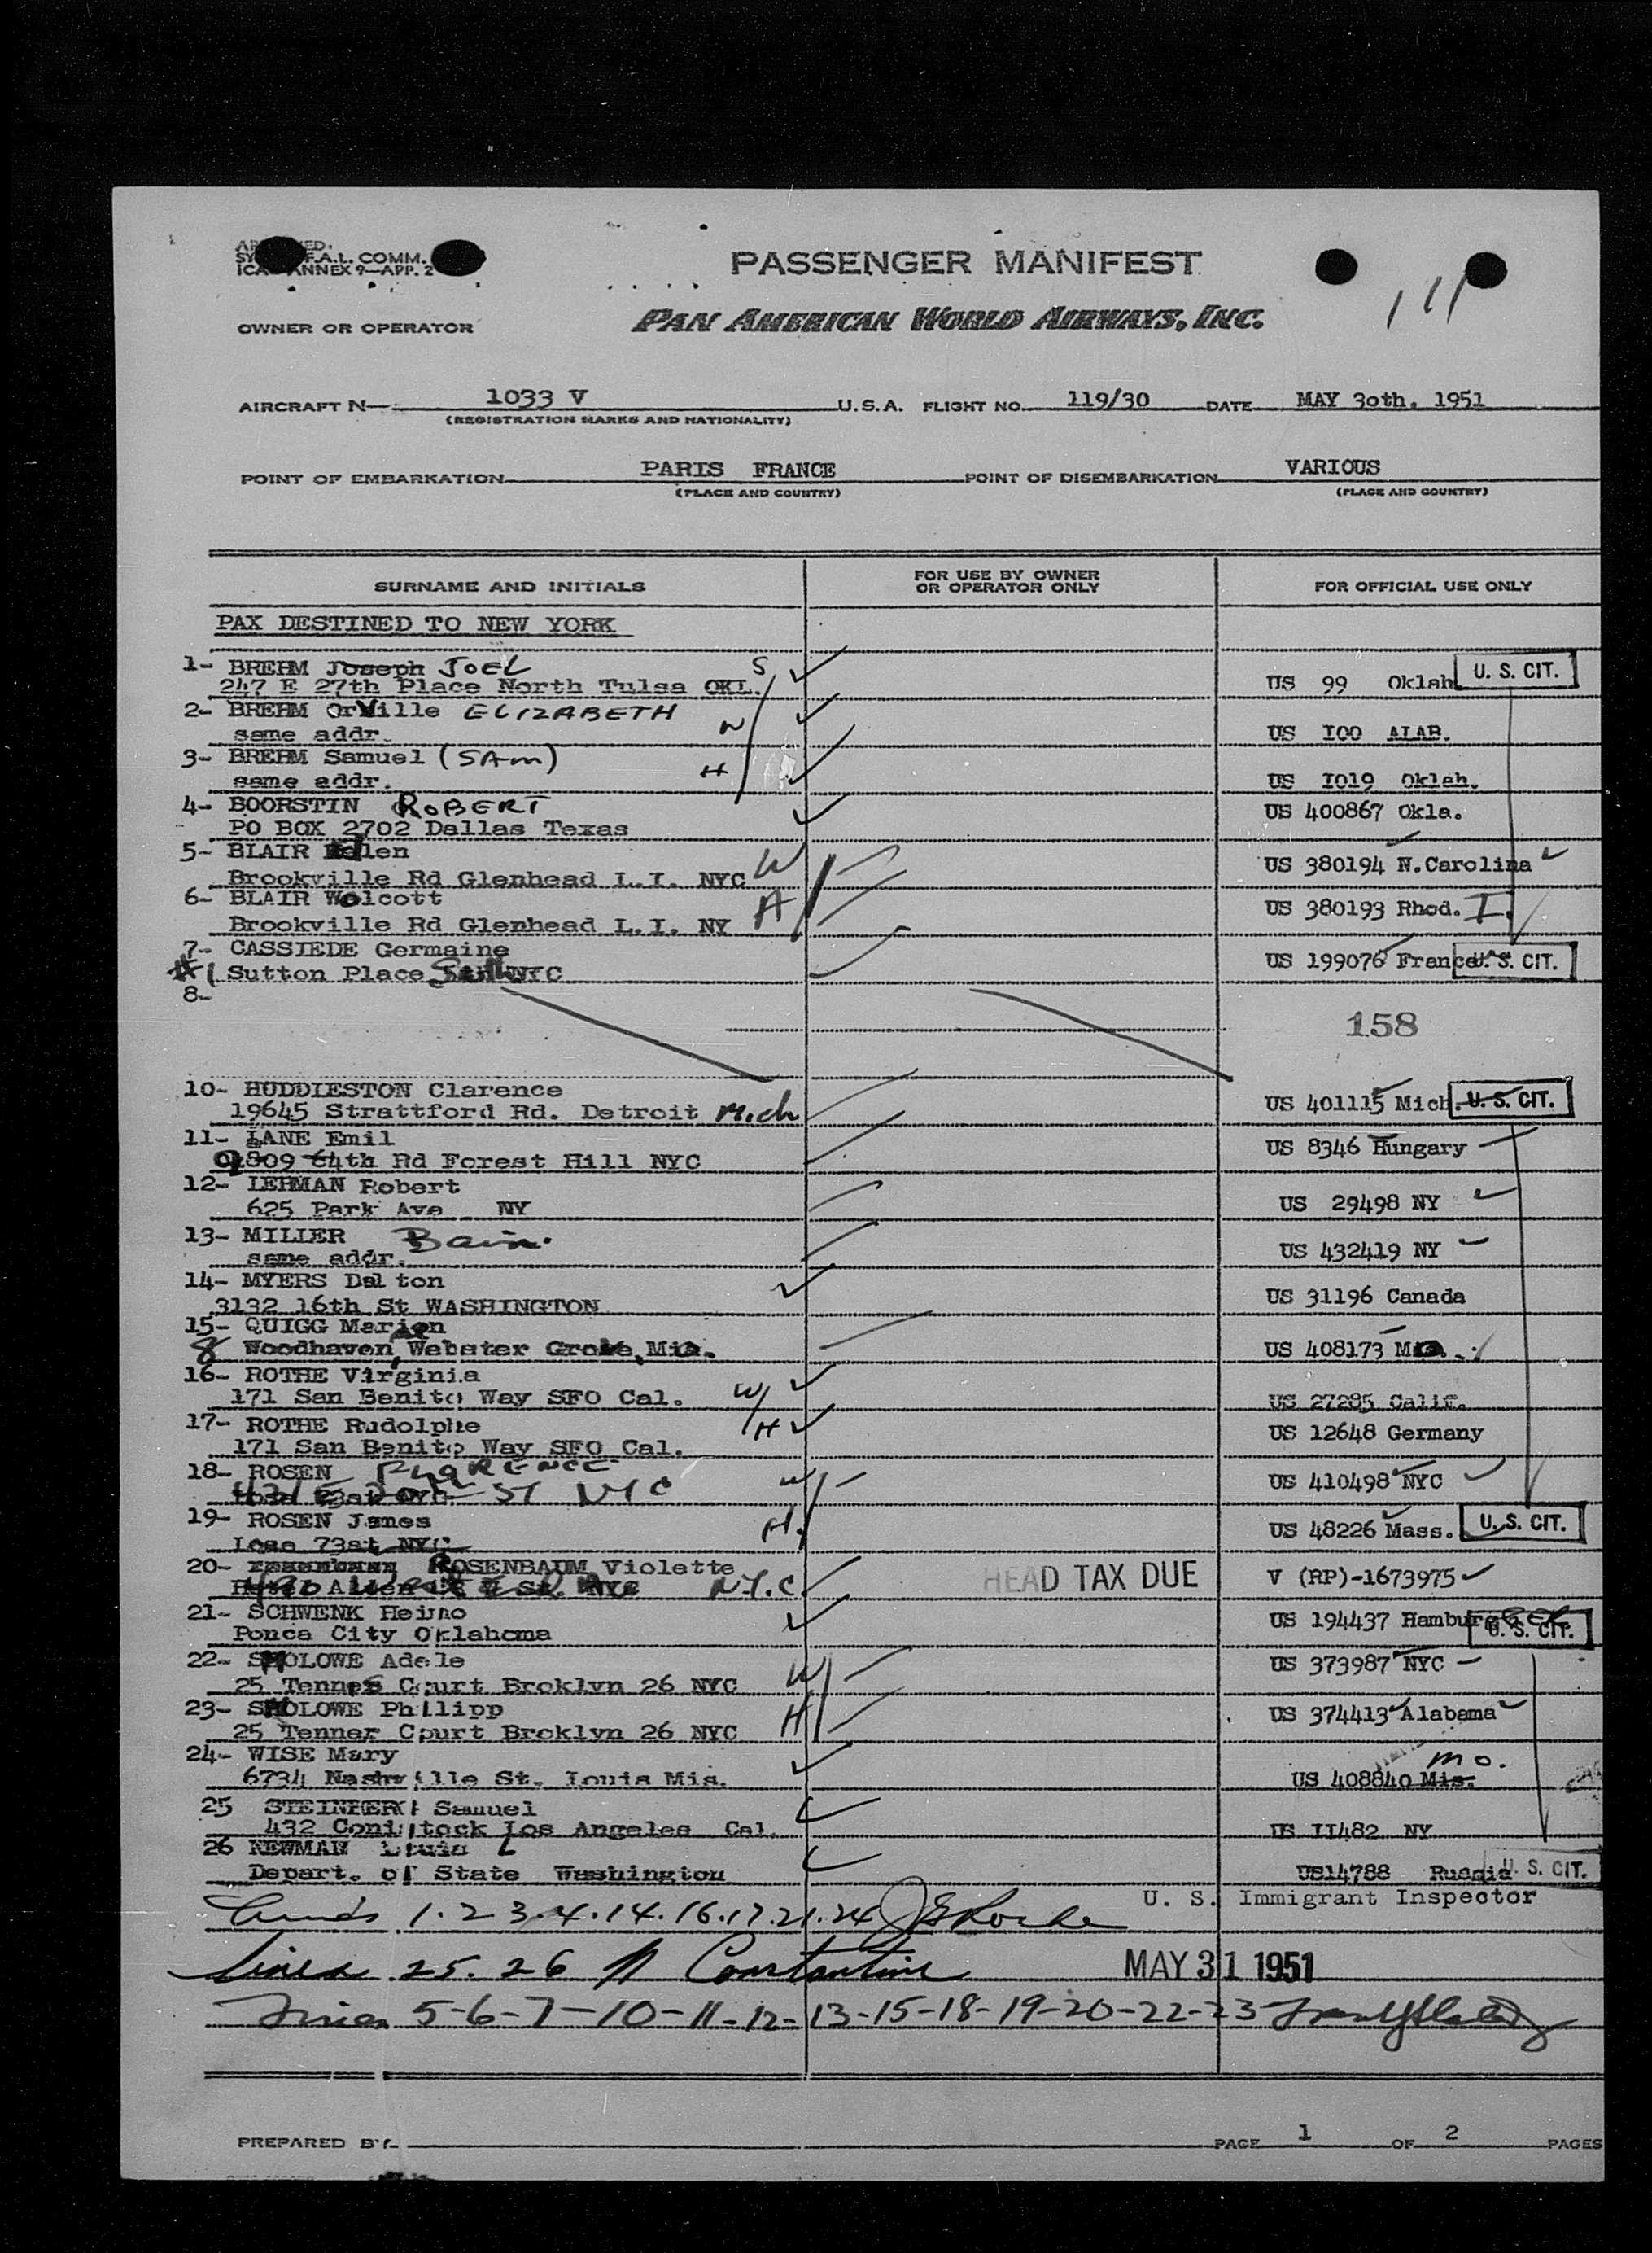 F.A.L. COMM.
ANNEX 9—APP. 2
PASSENGER MANIFEST
111
OWNER OR OPERATOR
PAN AMERICAN WORLD AIRWAYS, INC.
AIRCRAFT N 1033 V U.S.A. FLIGHT NO. 119/30 DATE MAY 30th. 1951
(REGISTRATION MARKS AND NATIONALITY)
POINT OF EMBARKATION PARIS FRANCE POINT OF DISEMBARKATION VARIOUS
(PLACE AND COUNTRY) (PLACE AND COUNTRY)
SURNAME AND INITIALS FOR USE BY OWNER OR OPERATOR ONLY FOR OFFICIAL USE ONLY
PAX DESTINED TO NEW YORK
1- BREHM Joseph JOEL S
247 E 27th Place North Tulsa OKL. US 99 Oklah U. S. CIT.
2- BREHM Orville ELIZABETH W
same addr. US I00 ALAB.
3- BREHM Samuel (SAM) H
same addr. US I019 Oklah.
4- BOORSTIN ROBERT US 400867 Okla.
PO BOX 2702 Dallas Texas
5- BLAIR W
Brookville Rd Glenhead L.I. NYC US 380194 N.Carolina
6- BLAIR Wolcott H
Brookville Rd Glenhead L.I. NY US 380193 Rhod. I.
7- CASSIEDE Germaine
#1 Sutton Place NYC US 199076 France U. S. CIT.
8-
158
10- HUDDLESTON Clarence
19645 Strattford Rd. Detroit Mich US 401115 Mich. U. S. CIT.
11- LANE Emil
9809 64th Rd Forest Hill NYC US 8346 Hungary
12- LEHMAN Robert
625 Park Ave NY US 29498 NY
13- MILLER Bain.
same addr. US 432419 NY
14- MYERS Dalton
3132 16th St WASHINGTON US 31196 Canada
15- QUIGG Marion
8 Woodhaven, Webster Grove, Mio. US 408173
16- ROTHE Virginia
171 San Benito Way SFO Cal. W US 27285 Calif.
17- ROTHE Rudolphe H US 12648 Germany
171 San Benito Way SFO Cal.
18- ROSEN W US 410498 NYC
ST NYC
19- ROSEN James H. US 48226 Mass. U. S. CIT.
73st NYC
20- ROSENBAUM Violette HEAD TAX DUE V (RP)-1673975
N.Y.C.
21- SCHWENK Heimo US 194437 Hamburg GER U. S. CIT.
Ponca City Oklahoma
22- SMOLOWE Adele W US 373987 NYC
25 Tennes Court Broklyn 26 NYC
23- SMOLOWE Philipp H US 374413 Alabama
25 Tenner Court Broklyn 26 NYC
24- WISE Mary mo.
6734 Nashville St. Louis Mis. US 408840 Mis.
25 Samuel
432 Comstock Los Angeles Cal. US II482 NY
26 NEWMAN L
Depart. of State Washington US14788 Russia U. S. CIT.
1.2 3.4.14.16.17.21.24 U. S. Immigrant Inspector
Lines 25. 26 Constantine MAY 31 1951
Lines 5-6-7-10-11-12-13-15-18-19-20-22-23
PREPARED BY PAGE 1 OF 2 PAGES